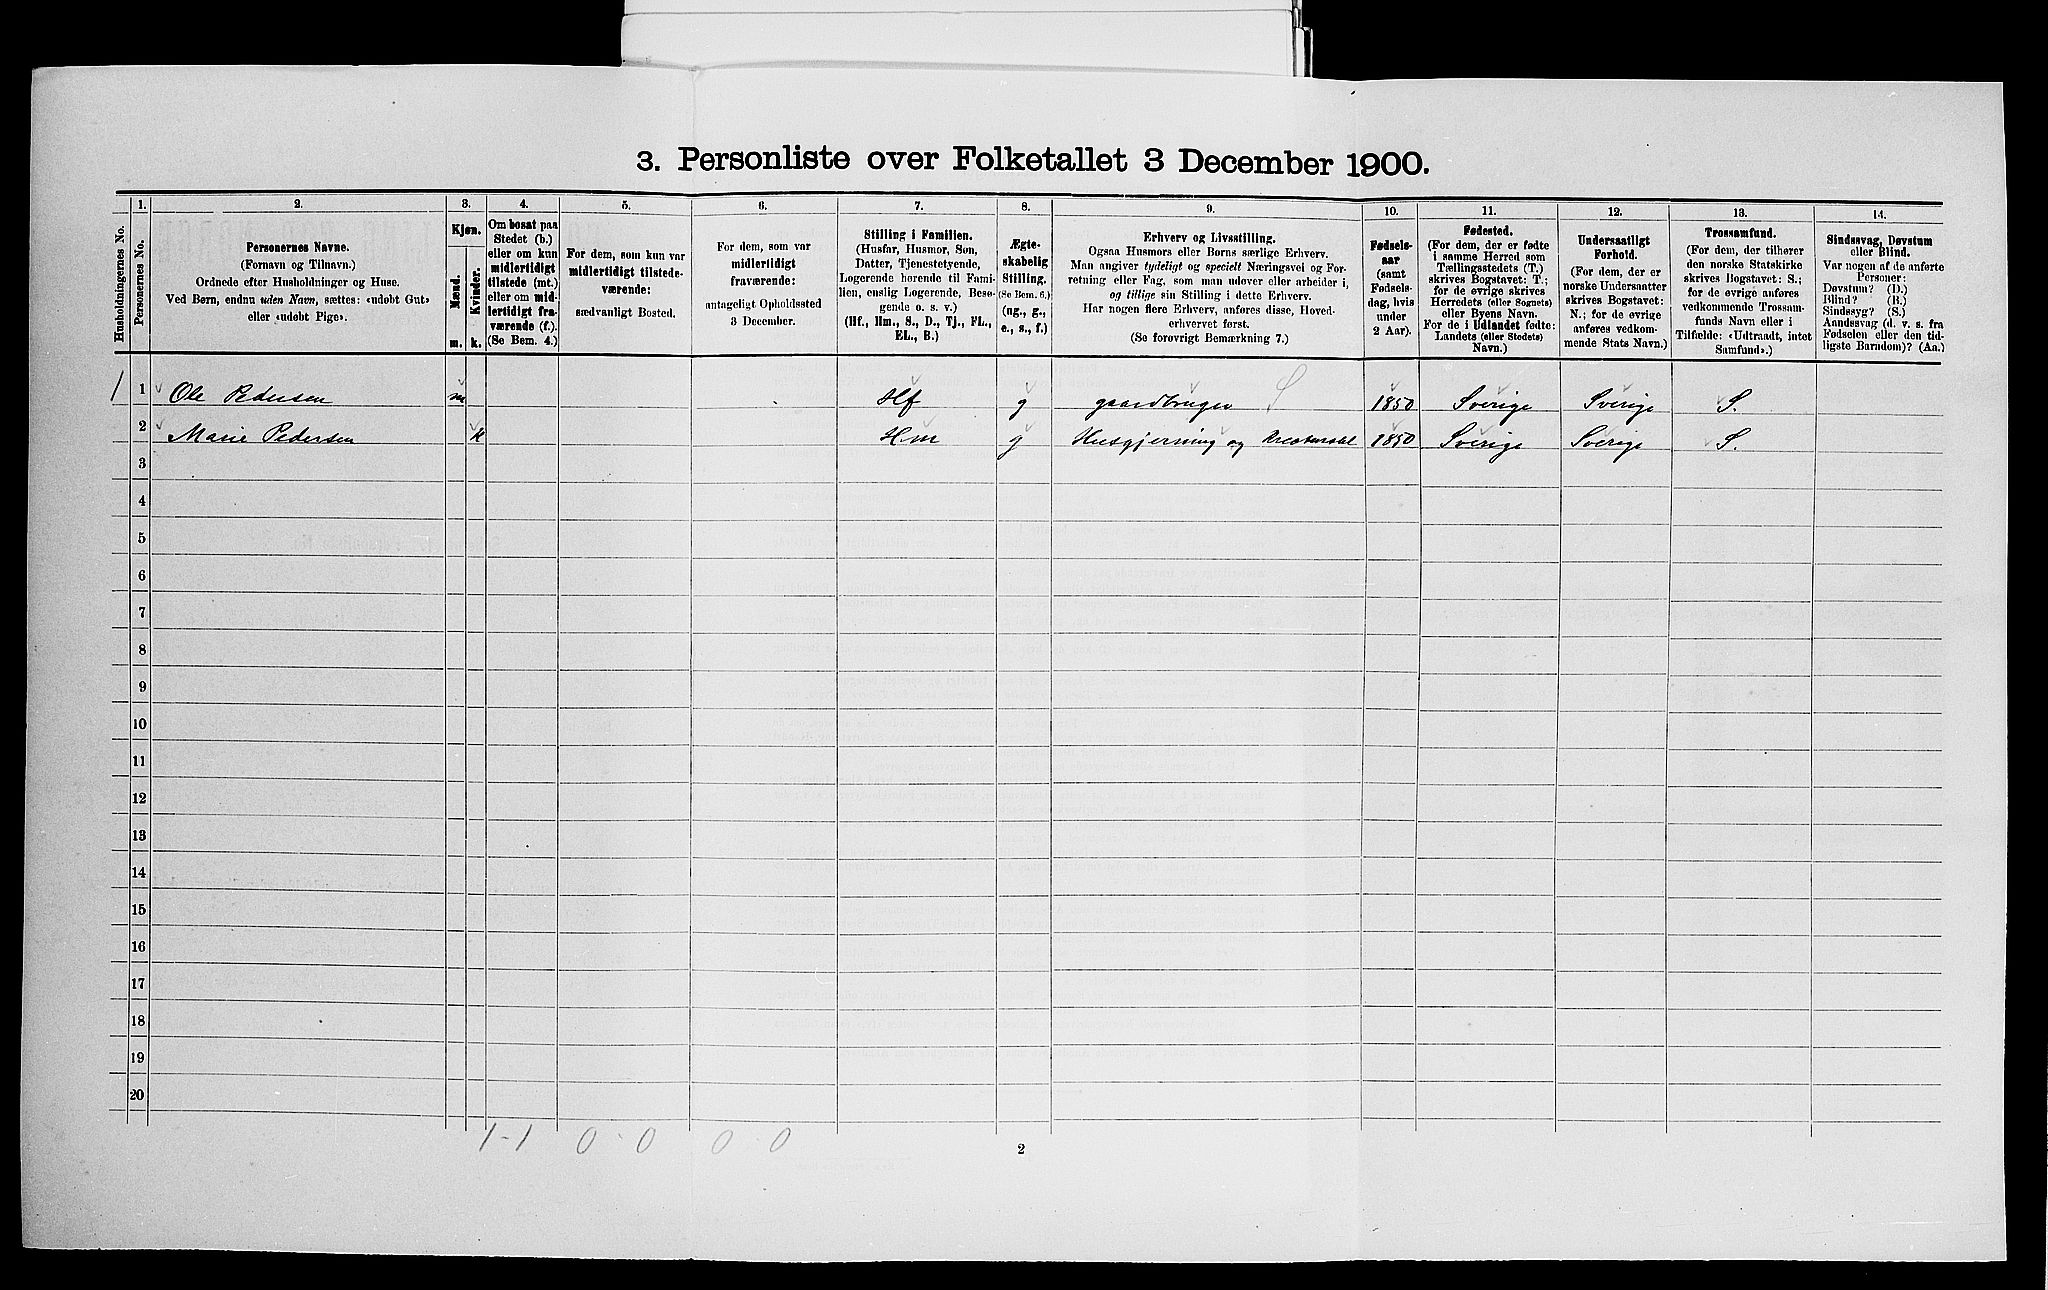 3. Personliste over Folketallet 3 December 1900.
Husholdningernes No.
1.
Personernes No.
2.
Personernes Navne.
(Fornavn og Tilnavn.)
Ordnede efter Husholdninger og Huse.
Ved Børn, endnu uden Navn, sættes: «udøbt Gut»
eller «udøbt Pige».
3.
Kjøn.
Mænd.
Kvinder.
m.
k.
4.
Om bosat paa
Stedet (b.)
eller om kun
midlertidigt
tilstede (mt.)
eller om mid-
lertidigt fra-
værende (f.)
(Se Bem. 4.)
5.
For dem, som kun var
midlertidigt tilstede-
værende:
sædvanligt Bosted.
6.
For dem, som var
midlertidigt
fraværende:
antageligt Opholdssted
3 December.
7.
Stilling i Familien.
(Husfar, Husmor, Søn,
Datter, Tjenestetyende,
Logerende hørende til Fami-
lien, enslig Logerende, Besø-
gende o. s. v.)
(Hf., Hm., S., D., Tj., FL.,
EL., B.)
8.
Ægte-
skabelig
Stilling.
(Se Bem. 6.)
(ug., g.,
e., s., f.)
9.
Erhverv og Livsstilling.
Ogsaa Husmors eller Børns særlige Erhverv.
Man angiver tydeligt og specielt Næringsvei og For-
retning eller Fag, som man udøver eller arbeider i,
og tillige sin Stilling i dette Erhverv.
Har nogen flere Erhverv, anføres disse, Hoved-
erhvervet først.
(Se forøvrigt Bemærkning 7.)
10.
Fødsels-
aar
(samt
Fødsels-
dag, hvis
under
2 Aar).
11.
Fødested.
(For dem, der er fødte
i samme Herred som
Tællingsstedets (T.)
skrives Bogstavet: T.;
for de øvrige skrives
Herredets (eller Sognets)
eller Byens Navn.
For de i Udlandet fødte:
Landets (eller Stedets)
Navn.)
12.
Undersaatligt
Forhold.
(For dem, der er
norske Undersaatter
skrives Bogstavet:
N.; for de øvrige
anføres vedkom-
mende Stats Navn.)
13.
Trossamfund.
(For dem, der tilhører
den norske Statskirke
skrives Bogstavet: S.;
for de øvrige anføres
vedkommende Trossam-
funds Navn eller i
Tilfælde: «Udtraadt, intet
Samfund».)
14.
Sindssvag, Døvstum
eller Blind.
Var nogen af de anførte
Personer:
Døvstum? (D.)
Blind? (B.)
Sindssyg? (S.)
Aandssvag (d. v. s. fra
Fødselen eller den tid-
ligste Barndom)? (Aa.)
1 1 Ole Pedersen m Hf g gaardbruger S 1850 Sverige Sverige S.
2 Marie Pedersen k Hm g Husgjerning og Kreaturstel 1850 Sverige Sverige S.
3
4
5
6
7
8
9
10
11
12
13
14
15
16
17
18
19
20
1-1 0-0 0-0
2